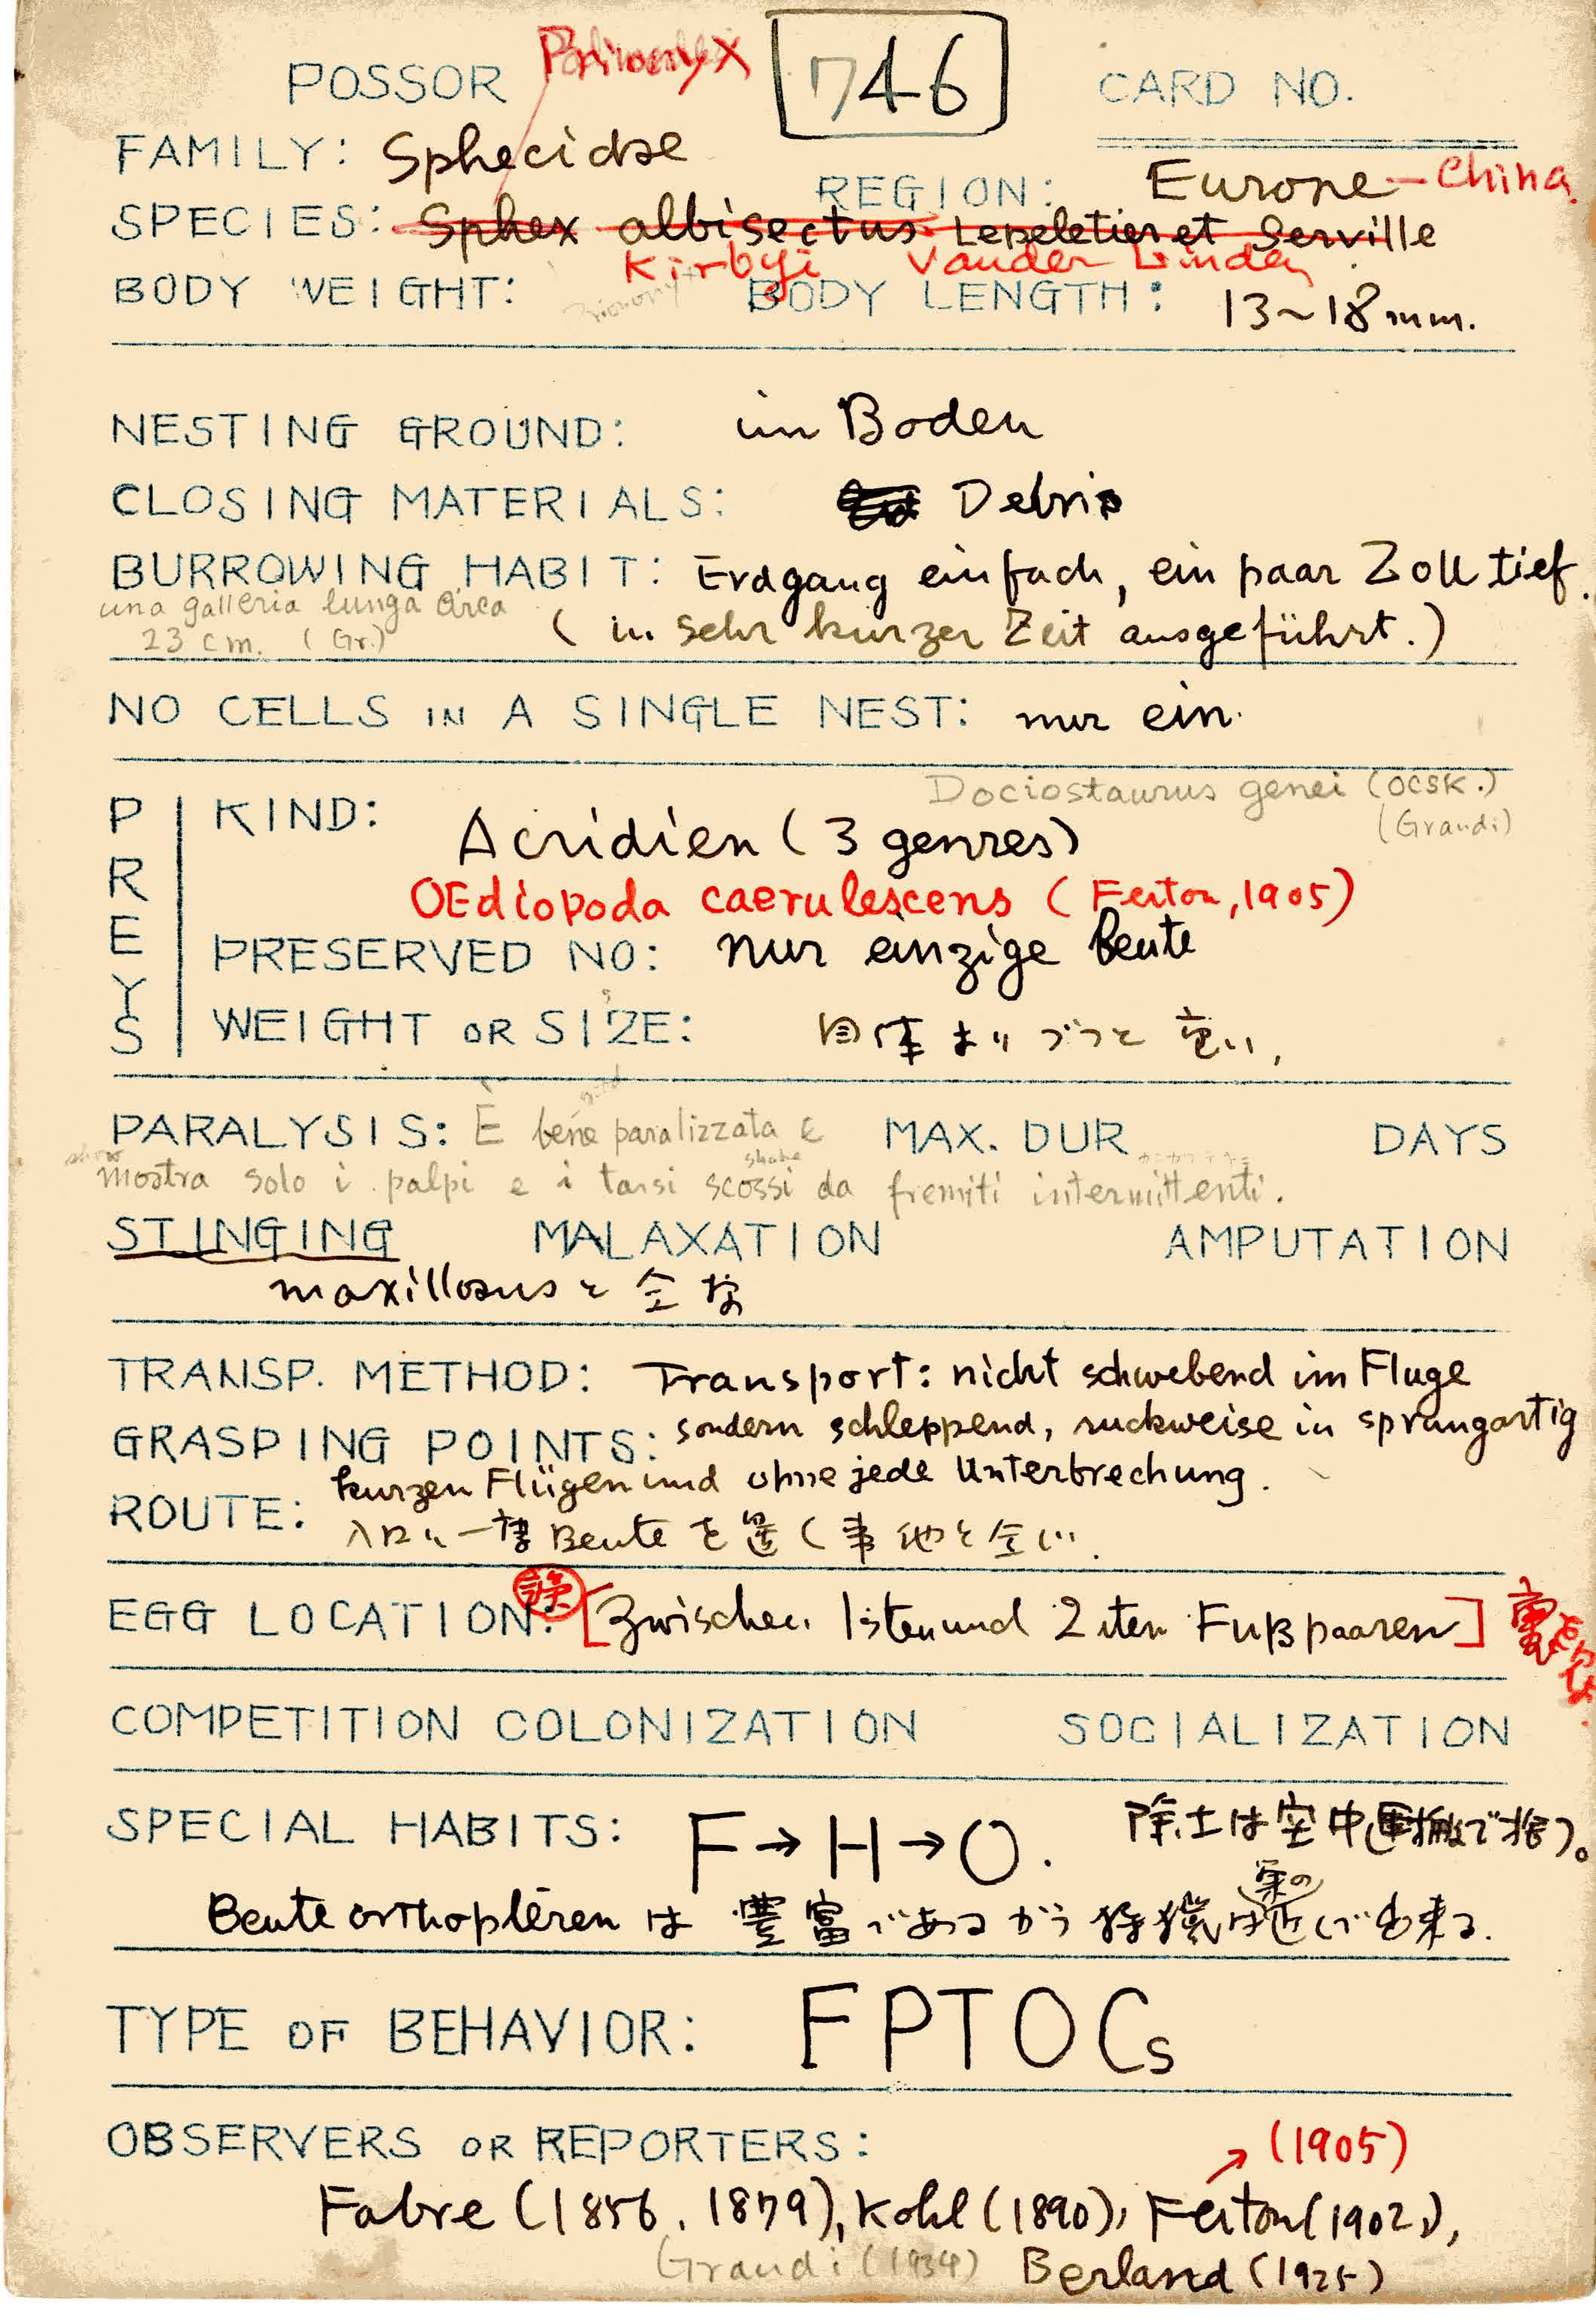 POSSOR Prionyx 746 CARD NO.
FAMILY: Sphecidae
REGION: Europe - China
SPECIES: Sphex albisectus Lepeletier et Serville
Kirbyi Vander Linden
BODY WEIGHT: Prionyx BODY LENGTH: 13~18mm.
NESTING GROUND: im Boden
CLOSING MATERIALS: Debris
BURROWING HABIT: Erdgang einfach, ein paar Zoll tief.
una galleria lunga circa
23 cm. (Gr.) (in sehr kurzer Zeit ausgeführt.)
NO CELLS IN A SINGLE NEST: nur ein.
Dociostaurus genei (OCSK.)
(Grandi)
PREYS
KIND: Acridien (3 genres)
OEdiopoda caerulescens (Ferton, 1905)
PRESERVED NO: nur einzige Beute
WEIGHT OR SIZE: 自体よりづっと重い.
PARALYSIS: È bene paralizzata e MAX. DUR DAYS
show shake
mostra solo i palpi e i tarsi scossi da fremiti intermittenti.
STINGING MALAXATION AMPUTATION
maxillosusと全た
TRANSP. METHOD: Transport: nicht schwebend im Fluge
GRASPING POINTS: sondern schleppend, ruckweise in sprungartig
kurzen Flügen und ohne jede Unterbrechung.
ROUTE: 入口に一旦Beuteを置く事他と全じ.
EGG LOCATION: 誤 [Zwischen 1sten und 2iten Fußpaaren]
COMPETITION COLONIZATION SOCIALIZATION
SPECIAL HABITS: F→H→O. 除土は空中運搬で捨つ。
Beute orthoptèren は豊富であるから狩猟は巣の近くで出来る.
TYPE OF BEHAVIOR: FPTOCs
OBSERVERS OR REPORTERS:
(1905)
Fabre (1856, 1879), Kohl (1890), Ferton (1902),
Grandi (1934) Berland (1925)